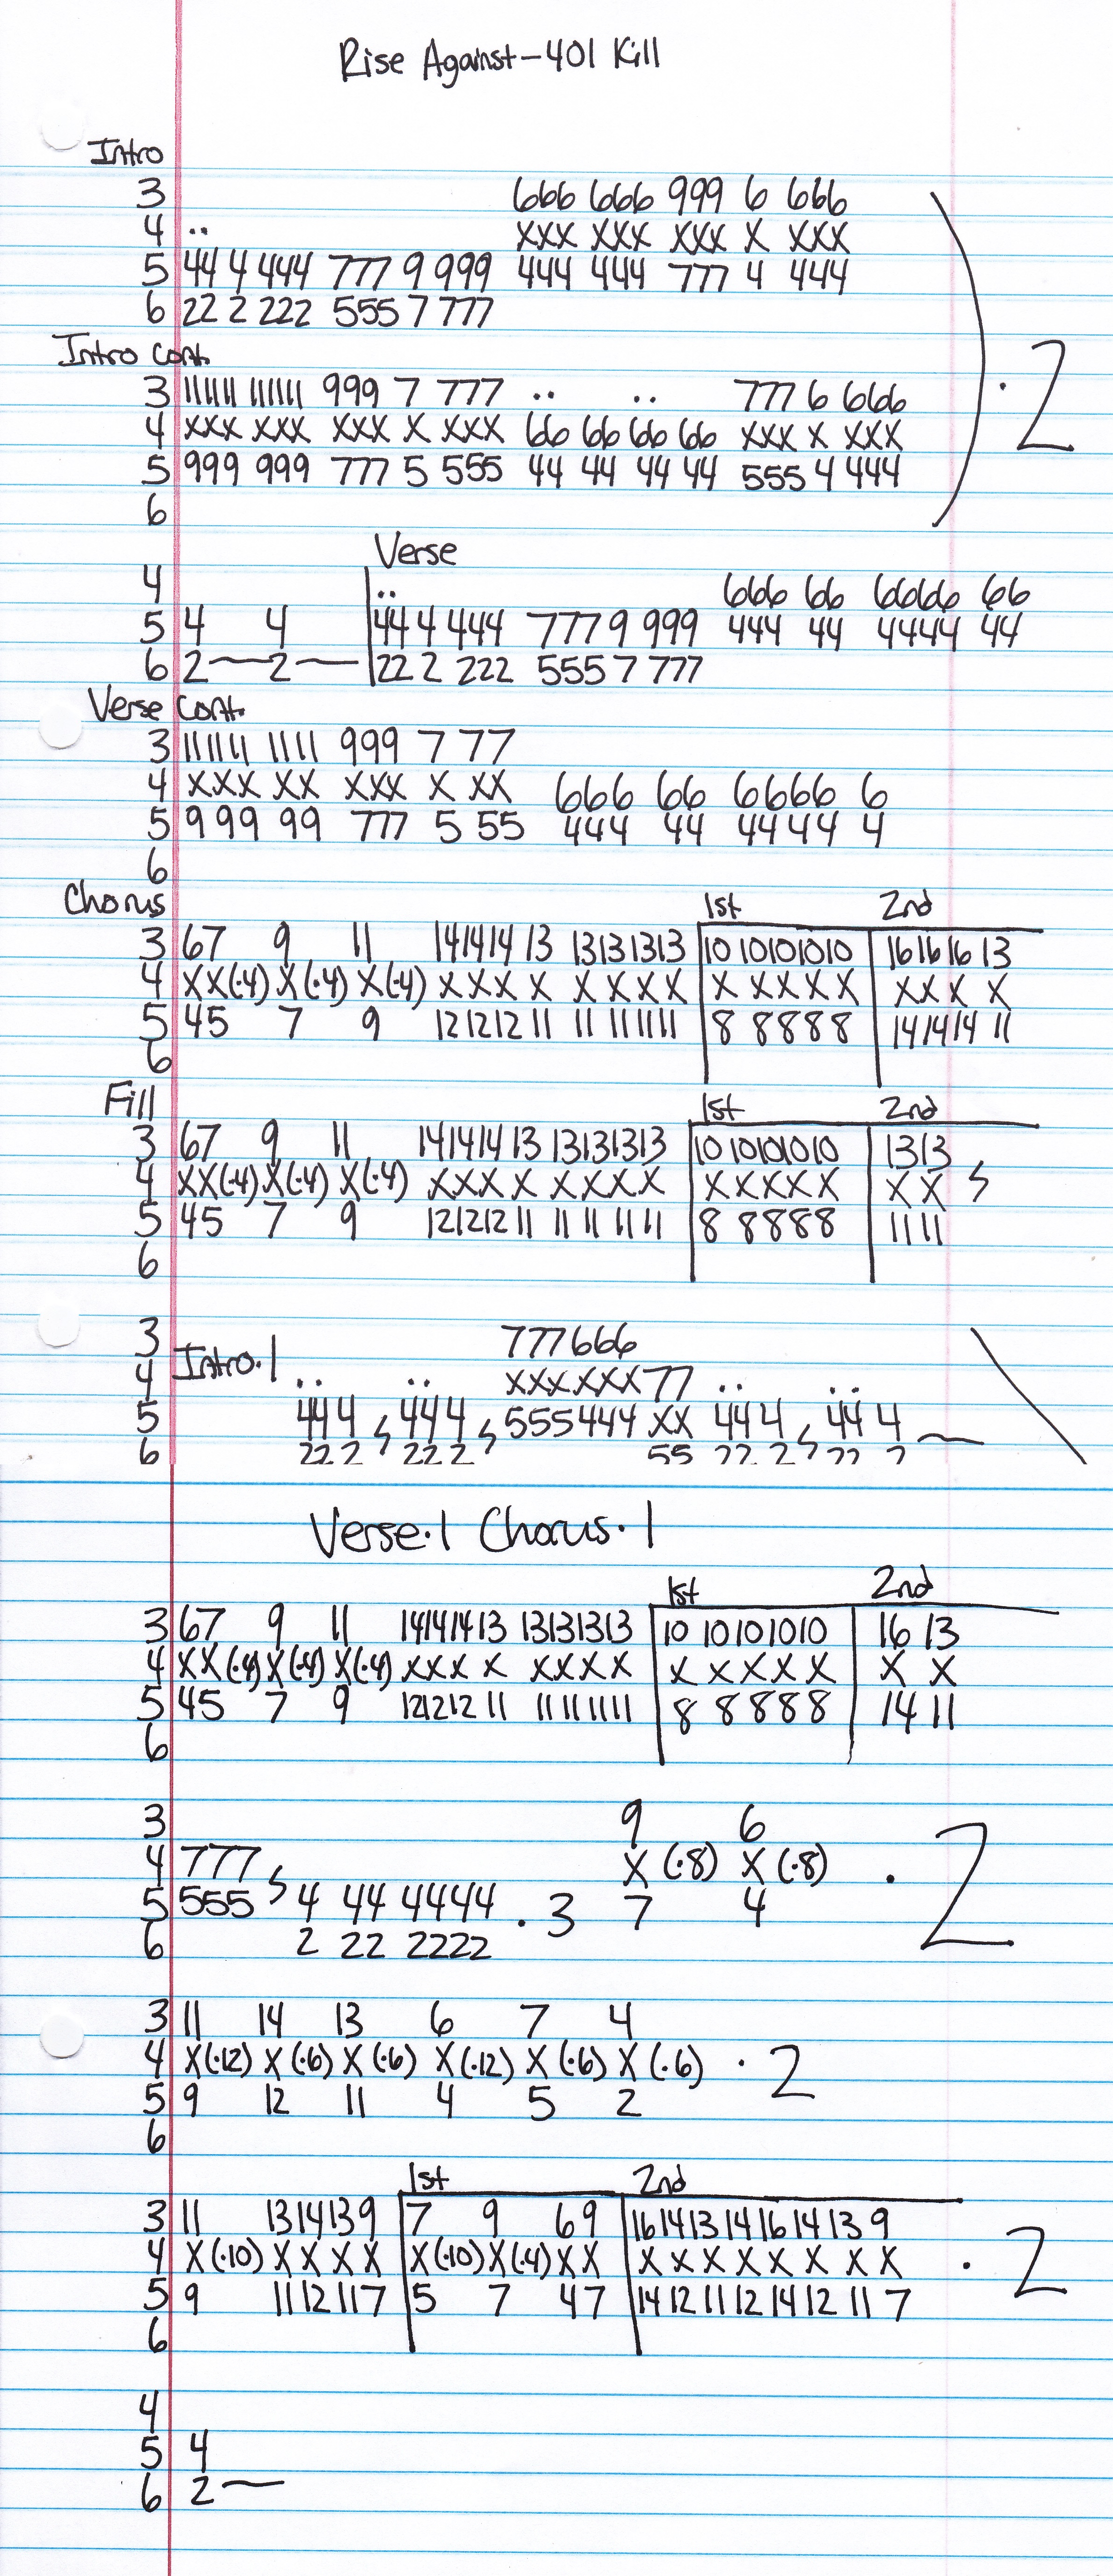 Rise Against-401 Kill
Intro
3 666 666 999 6 666
4 .. XXX XXX XXX X XXX
5 44 4 444 777 9 999 444 444 777 4 444
6 22 2 222 555 7 777
Intro cont.
3 111111 111111 999 7 777 .. .. 777 6 666
4 XXX XXX XXX X XXX 66 66 66 66 XXX X XXX
5 999 999 777 5 555 44 44 44 44 555 4 444
6
·2
Verse
4 .. 666 66 6666 66
5 4 4 44 4 444 777 9 999 444 44 4444 44
6 2—2— 22 2 222 555 7 777
Verse Cont.
3 111111 1111 999 7 77
4 XXX XX XXX X XX 666 66 6666 6
5 9 99 99 777 5 55 444 44 44 44 4
6
Chorus 1st 2nd
3 67 9 11 141414 13 13131313 10 10101010 161616 13
4 XX(·4) X(·4) X(·4) XXX X XXXX X XXXX XXX X
5 45 7 9 121212 11 11 111111 8 8888 141414 11
6
Fill 1st 2nd
3 67 9 11 141414 13 13131313 10 10101010 1313
4 XX(·4) X(·4) X(·4) XXX X XXXX XXXXX XX
5 45 7 9 121212 11 11 11 11 11 8 8888 11 11
6
3 777666
4 Intro·1 .. .. XXXXXX77 .. ..
5 44 4 44 4 555444 XX 44 4 44 4
6 22 2 22 2 55 22 2 22 2
Verse·1 Chorus·1
1st 2nd
3 67 9 11 141414 13 13131313 10 10101010 16 13
4 XX(·4) X(·4) X(·4) XXX X XXXX X XXXX X X
5 45 7 9 121212 11 11111111 8 8888 14 11
6
3 9 6
4 777 X (·8) X (·8) ·2
5 555 4 44 4444 ·3 7 4
6 2 22 2222
3 11 14 13 6 7 4
4 X(·12) X (·6) X (·6) X(·12) X (·6) X (·6) ·2
5 9 12 11 4 5 2
6
1st 2nd
3 11 1314139 7 9 69 16141314161413 9
4 X(·10) XXXX X(·10)X(·4)XX XXXXXXXX ·2
5 9 1112117 5 7 47 14121112141211 7
6
4
5 4
6 2—